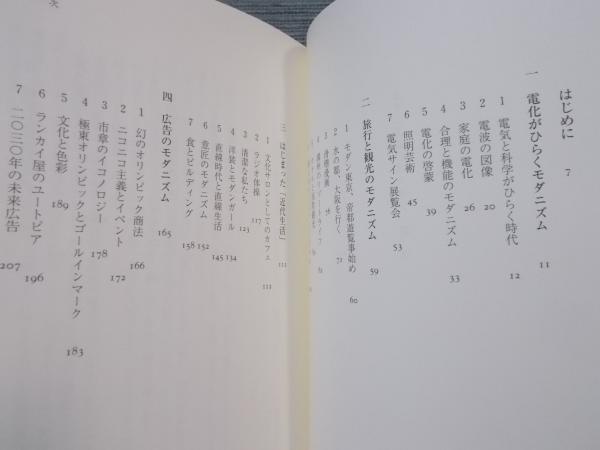 はじめに 7
一 電化がひらくモダニズム 11
1 電気と科学がひらく時代 12
2 電波の図像 20
3 家庭の電化 26
4 合理と機能のモダニズム 33
5 電化の啓蒙 39
6 照明芸術 45
7 電気サイン展覧会 53
二 旅行と観光のモダニズム 59
1 モダン東京、帝都遊覧事始め 60
2 水の都、大阪を行く 71
三 はじまった「近代生活」 111
1 文化サロンとしてのカフェ 111
2 ラジオ体操 117
3 清潔な私たち 123
4 洋装とモダンガール 134
5 直線時代と直線生活 145
6 意匠のモダニズム 152
7 食とビルディング 158
四 広告のモダニズム 165
1 幻のオリンピック商法 166
2 ニコニコ主義とイベント 172
3 市章のイコノロジー 178
4 極東オリンピックとゴールインマーク 183
5 文化と色彩 189
6 ランカイ屋のユートピア 196
7 二〇三〇年の未来広告 207
次